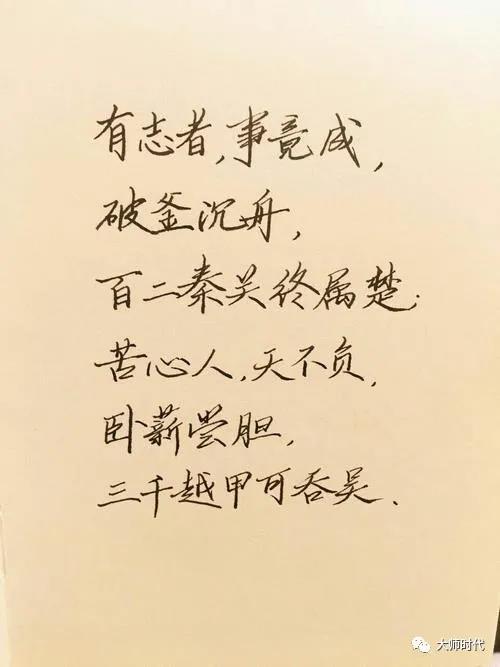 有志者,事竟成,
破釜沉舟,
百二秦关终属楚.
苦心人,天不负,
卧薪尝胆,
三千越甲可吞吴.
大师时代